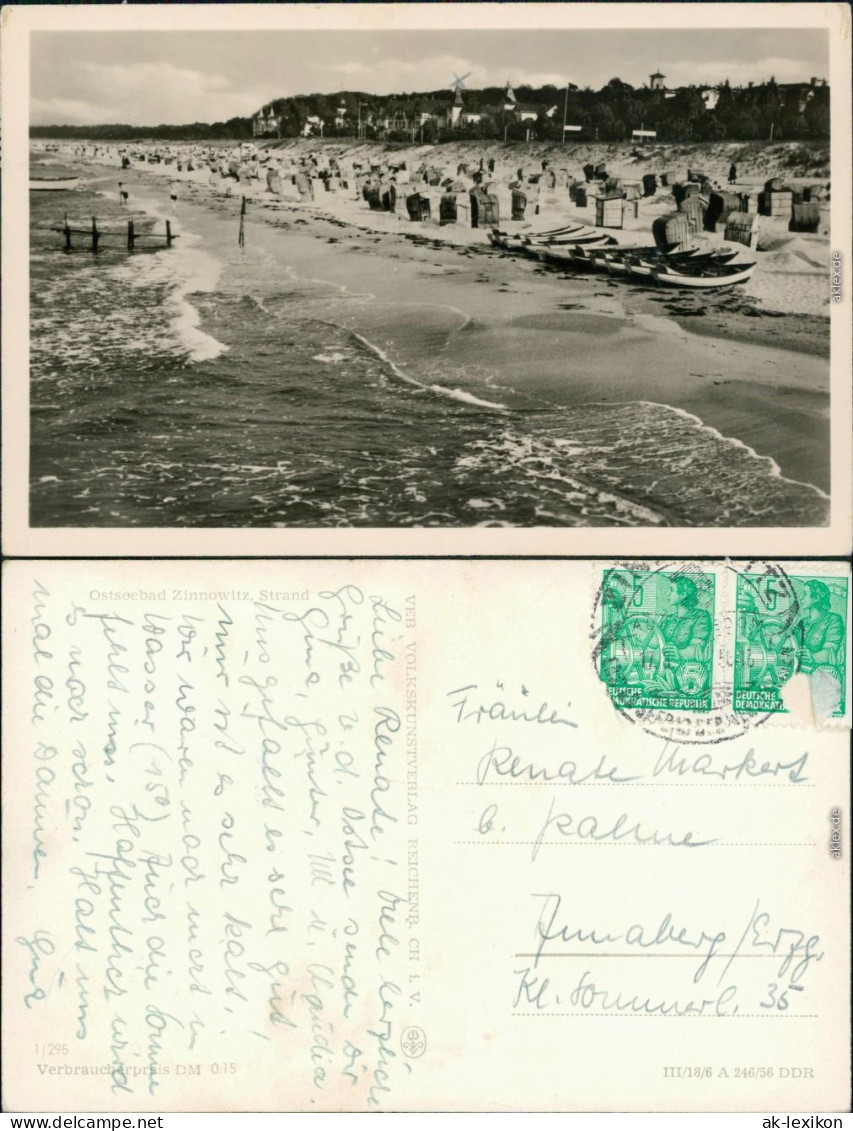 aklex.de
Ostseebad Zinnowitz, Strand
VEB VOLKSKUNSTVERLAG REICHENB. CH i. V.
Liebe Renate! Viele herzliche
Grüße v. d. Ostsee senden Dir
Gina, Günter, Ulli u. Claudia.
Uns gefällt es sehr gut
nur ist es sehr kalt,
wir waren noch nicht im
Wasser (15°) Auch die Sonne
fehlt uns. Hoffentlich wird
es noch schön. Halt uns
mal die Daumen,
1/295
Verbraucherpreis DM 0.15
5
DEUTSCHE
DEMOKRATISCHE REPUBLIK
5
DEUTSCHE
DEMOKRAT
Fräulein
Renate Markert
b. Palme
Annaberg/Erzg.
Kl. Sommerl. 35
III/18/6 A 246/56 DDR
aklex.de
hippostcard.com
ak-lexikon